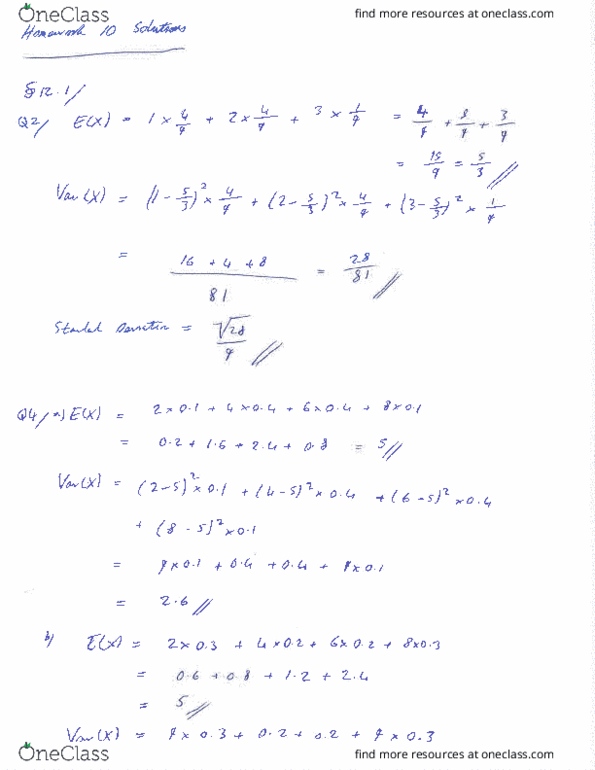 OneClass find more resources at oneclass.com
Homework 10 Solutions
§12.1/
Q2/ E(X) = 1 × 4/9 + 2 × 4/9 + 3 × 1/9 = 4/9 + 8/9 + 3/9
= 15/9 = 5/3 //
Var(X) = (1 - 5/3)² × 4/9 + (2 - 5/3)² × 4/9 + (3 - 5/3)² × 1/9
= 16 + 4 + 8 / 81 = 28/81 //
Standard Deviation = √28/9 //
Q4/ a) E(X) = 2×0.1 + 4×0.4 + 6×0.4 + 8×0.1
= 0.2 + 1.6 + 2.4 + 0.8 = 5//
Var(X) = (2-5)²×0.1 + (4-5)²×0.4 + (6-5)²×0.4
+ (8-5)²×0.1
= 9×0.1 + 0.4 + 0.4 + 9×0.1
= 2.6 //
b) E(X) = 2×0.3 + 4×0.2 + 6×0.2 + 8×0.3
= 0.6 + 0.8 + 1.2 + 2.4
= 5 //
Var(X) = 9×0.3 + 0.2 + 0.2 + 9×0.3
OneClass find more resources at oneclass.com